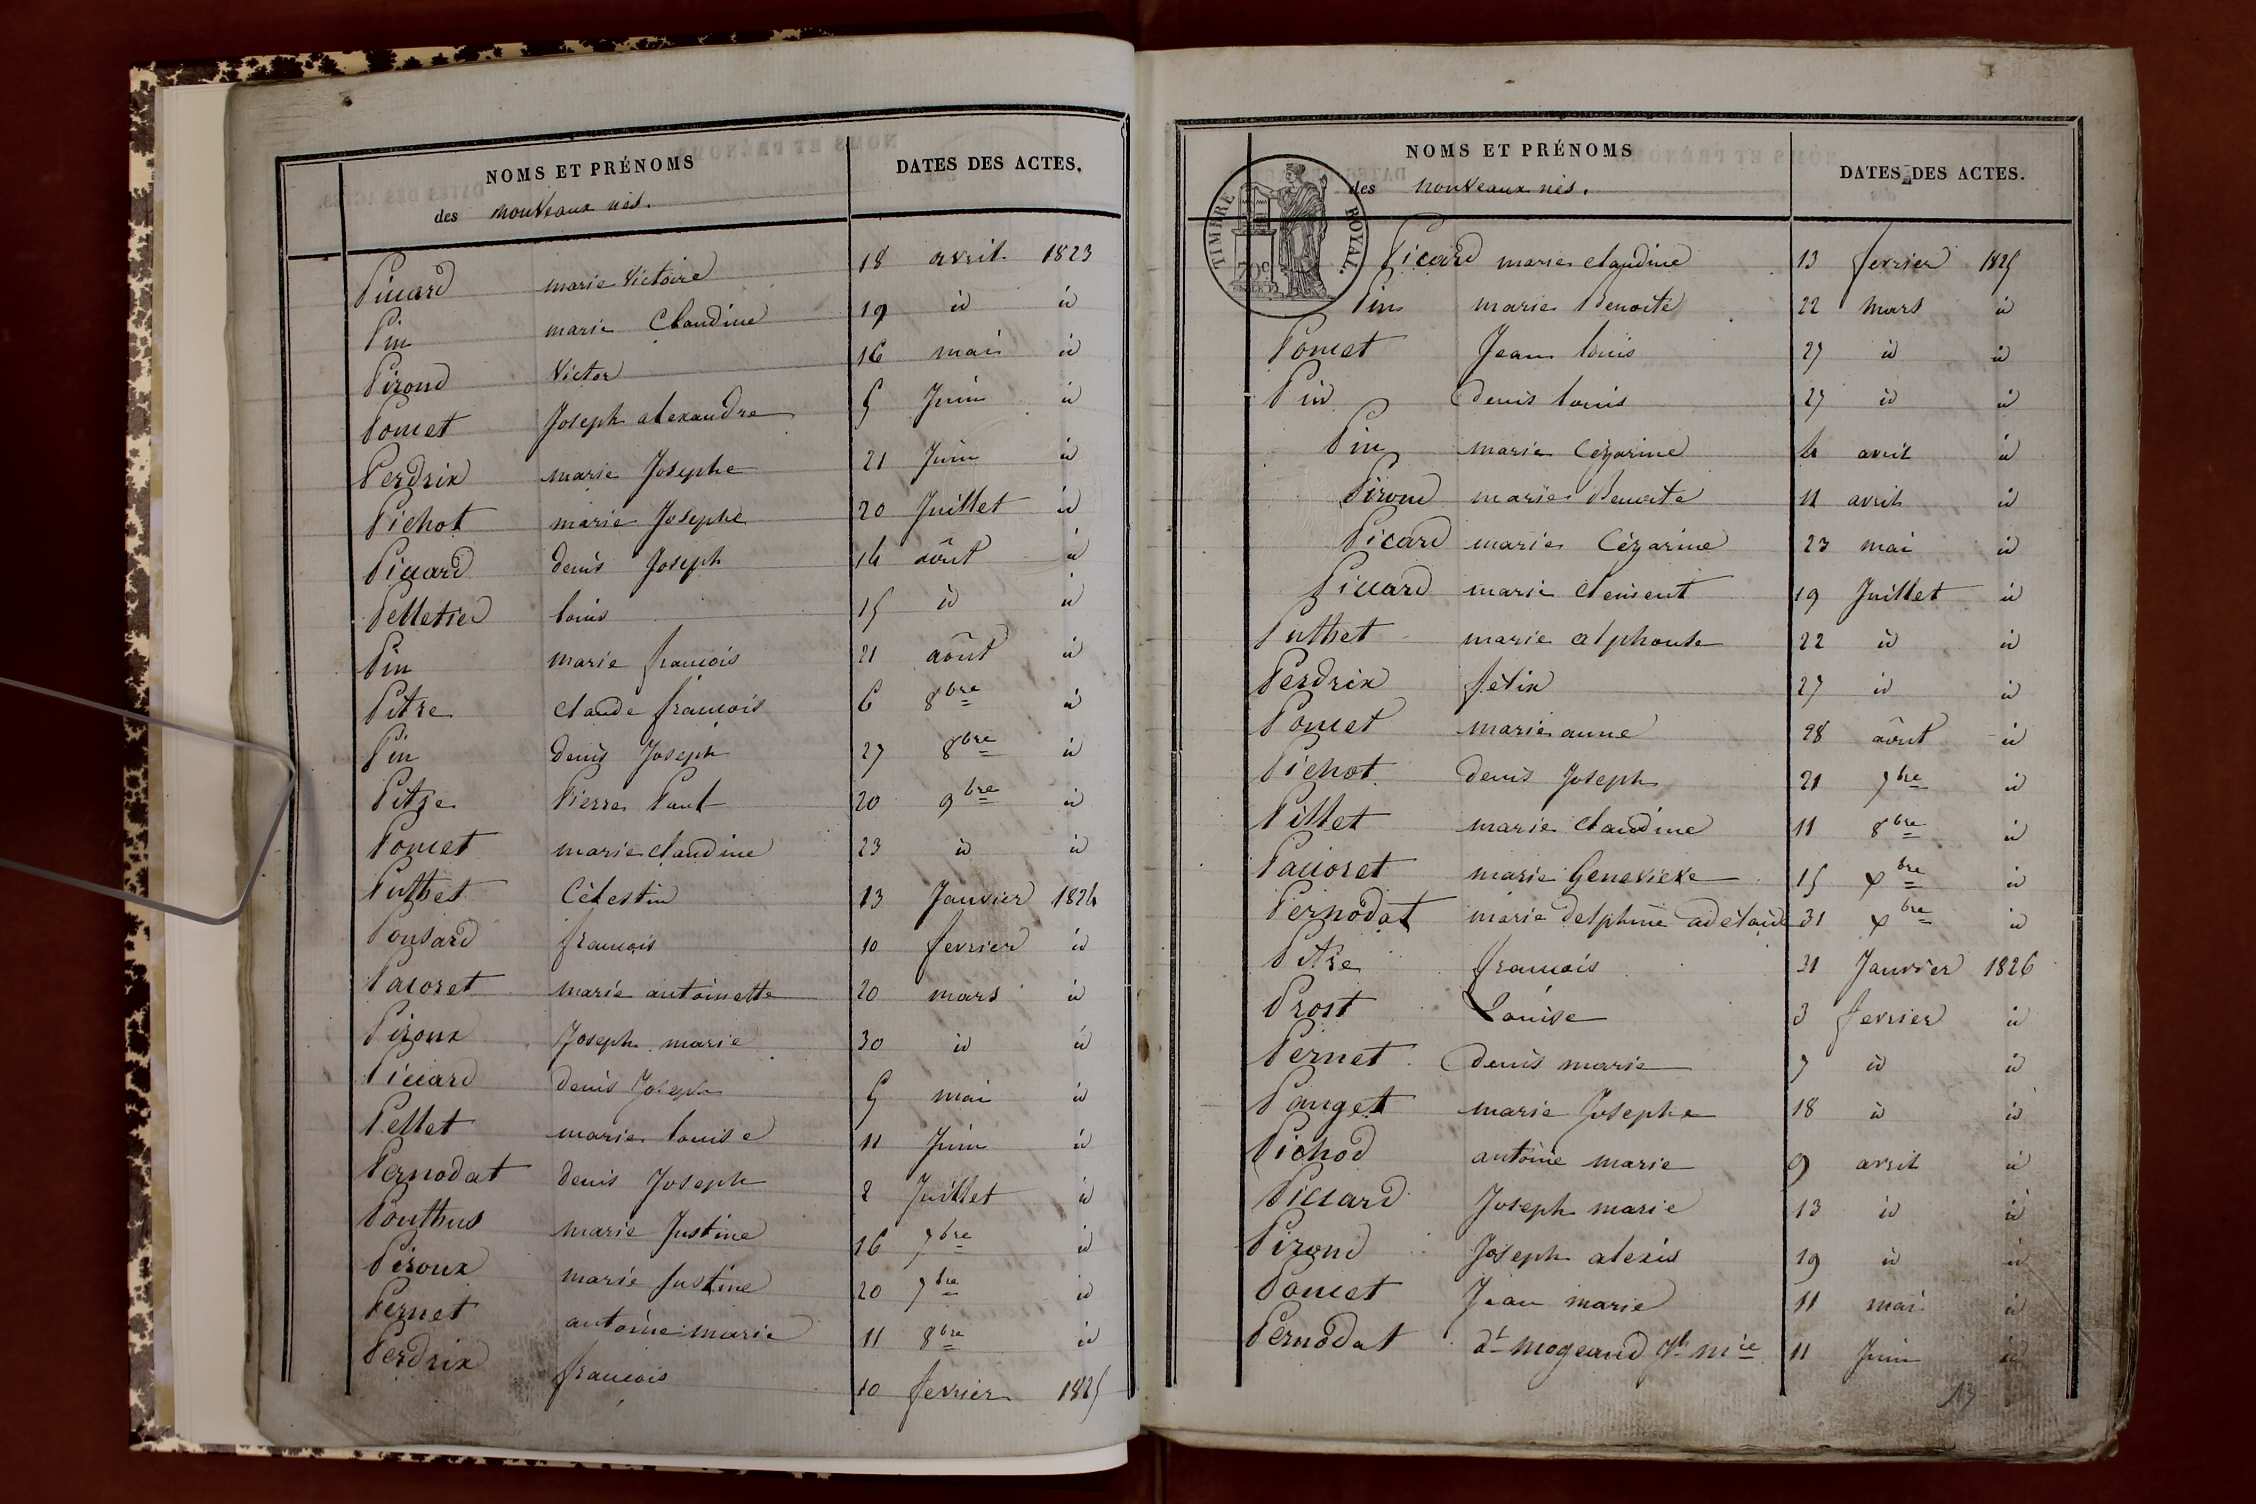 NOMS ET PRÉNOMS DATES DES ACTES.
des nouveaux nés.
Piccard marie Victoire 18 avril 1823
Pin marie Claudine 19 id id
Piroud Victor 16 mai id
Poncet Joseph alexandre 5 Juin id
Perdrix marie Josephe 21 Juin id
Pichot marie Josephe 20 Juillet id
Piccard denis Joseph 14 aôut id
Pelletier louis 15 id id
Pin marie francois 21 aôut id
Pitre claude francois 6 8bre id
Pin denis Joseph 27 8bre id
Pitre Pierre Paul 20 9bre id
Poncet marie claudine 23 id id
Puthet Célestin 13 Janvier 1824
Ponsard francois 10 fevrier id
Pacoret marie antoinette 20 mars id
Piroux Joseph marie 30 id id
Piccard denis Joseph 5 mai id
Pellet marie louise 11 Juin id
Pernodat denis Joseph 2 Juillet id
Ponthus marie Justine 16 7bre id
Piroux marie Justine 20 7bre id
Pernet antoine marie 11 8bre id
Perdrix francois 10 fevrier 1825
NOMS ET PRÉNOMS DATES DES ACTES.
des nouveaux nés.
TIMBRE ROYAL.
Picard marie claudine 13 fevrier 1825
Pin marie Benoite 22 mars id
Poncet Jean louis 27 id id
Pin denis louis 27 id id
Pin marie Cézarine 4 avril id
Piroud marie Benoite 11 avril id
Picard marie Cézarine 23 mai id
Piccard marie clement 19 Juillet id
Puthet marie alphonse 22 id id
Perdrix félix 27 id id
Poncet marie anne 28 aôut id
Pichot denis Joseph 21 7bre id
Pillet marie claudine 11 8bre id
Paccoret marie Genevieve 15 xbre id
Pernodat marie delphine adélaide 31 xbre id
Pitre francois 31 Janvier 1826
Prost Louise 3 fevrier id
Pernet denis marie 7 id id
Pauget marie Josephe 18 id id
Pichod antoine marie 9 avril id
Piccard Joseph marie 13 id id
Piroud Joseph alexis 19 id id
Poncet Jean marie 11 mai id
Pernodat dt mogeand Jh mie 11 Juin id